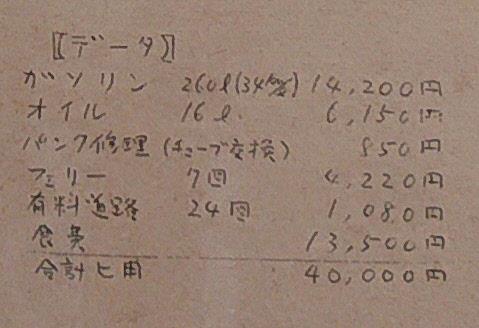 〚データ〛
ガソリン 260ℓ(34箇) 14,200円
オイル 16ℓ. 6,150円
パンク修理(チューブ交換) 850円
フェリー 7回 4,220円
有料道路 24回 1,080円
食費 13,500円
合計ヒ用 40,000円